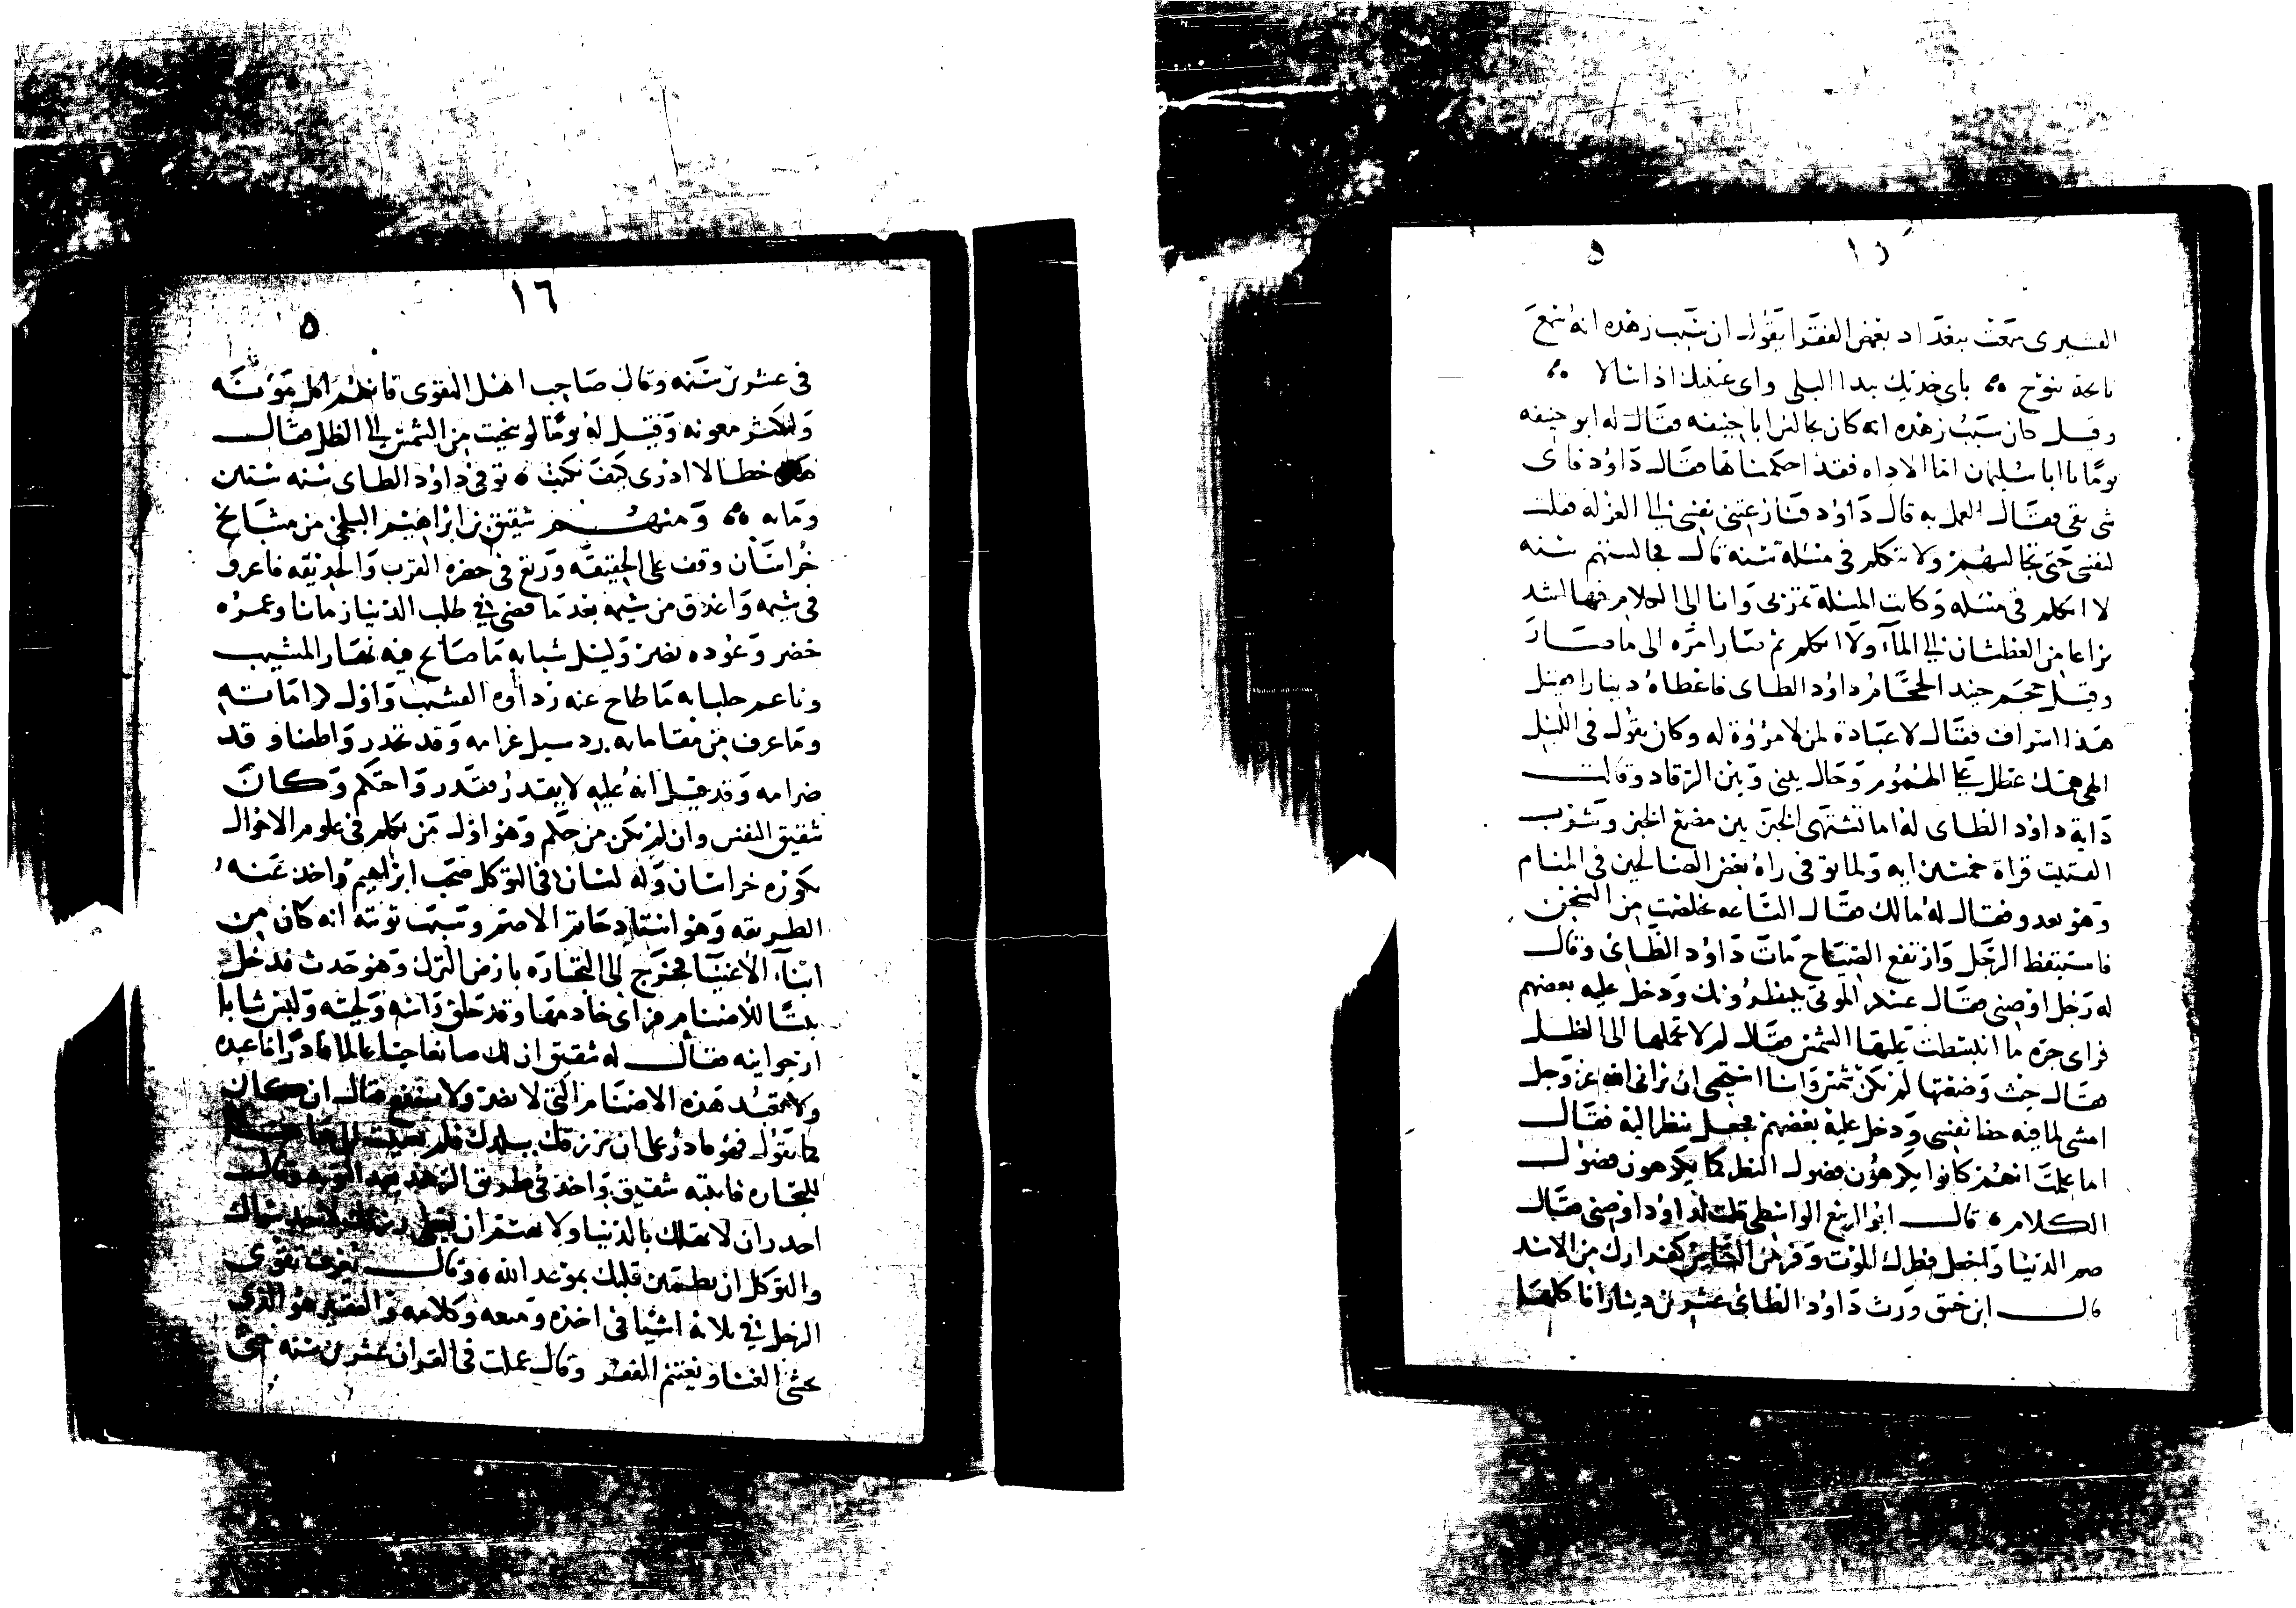 ١٥ ٥
القشيرى سمعت ببغداد بعض الفقرا يقول ان سبب زهده انه سمع
نايحة تنوح باى خديك تبدا البلى واى عينيك اذا سالا
وقيل كان سبب زهده انه كان يجالس ابا حنيفه فقال له ابو حنيفه
يوما يا ابا سليمان اما الاداه فقد احكمناها فقال داود فاى
شى بقى فقال العمل به قال داود فنازعتنى نفسى الى العزله فقلت
لنفسى حتى تجالسهم ولا تتكلم فى مسئلة سنه قال فجالستهم سنه
لا اتكلم فى مسئله وكانت المسئلة تمر بى وانا الى الكلام فيها اشد
نزاعا من العطشان الى المآء ولا اتكلم ثم صار امره الى ما صار
وقيل حجم جنيد الحجام داود الطاى فاعطاه دينارا فقيل
هذا اسراف فقال لا عبادة لمن لا مروة له وكان يقول فى الليل
الهى همك عطل على الهموم وحال بينى وبين الرقاد وقالت
داية داود الطاى له اما تشتهى الخبز قال بين مضغ الخبز وشرب
الفتيت قراة خمسين ايه ولما توفى راه بعض الصالحين فى المنام
وهو يعدو فقال له مالك فقال الساعه تخلصت من السجن
فاستيقظ الرجل وارتفع الصياح مات داود الطائى وقال
له رجل اوصنى فقال عسكر الموتى ينتظرونك ودخل عليه بعضهم
فراى جرة ما انبسطت عليها الشمس فقال لم لا تحملها الى الظل
فقال حيث وضعتها لم يكن شمس وانا استحيى ان يرانى الله عز وجل
امشى لما فيه حظ نفسى ودخل عليه بعضهم فجعل ينظر اليه فقال
اما علمت انهم كانوا يكرهون فضول النظر كما يكرهون فضول
الكلام قال ابو الربيع الواسطى قلت لداود اوصنى فقال
صم الدنيا واجعل فطرك الموت وفر من الناس كفرارك من الاسد
قال ابن خبيق ورث داود الطائى عشرين دينارا فاكلها
١٦ ٥
فى عشرين سنه وقال صاحب اهل التقوى فانهم اقل مؤنه
واكثر معونه وقيل له يوما لو تنحيت من الشمس الى الظل فقال
هذه خطا لا ادرى كيف تكتب توفى داود الطاى سنه ستين
ومايه ومنهم شقيق بن ابراهيم البلخى من مشايخ
خراسان وقف على الحقيقه ورتع فى حضرة القرب والحديقه فاعرق
فى شيمه واغدق من شيمه بعدما مضى فى طلب الدنيا زمانا وعمره
خضر وعوده نضر وليل شبابه ما صاح فيه نهار المشيب
وناعم جلبابه ما طاح عنه رداوه القشيب واول كراماته
وما عرف من مقاماته رد سيل غرامه وقد تحدر واطفا وقد
ضرامه وقد قيل انه عليه لا يقدر فقدر واحتكم وكان
شقيق النفس وان لم يكن من حكم وهو اول من تكلم فى علوم الاحوال
بكوره خراسان وله لسان فى التوكل صحب ابراهيم واخذ عنه
الطريقه وهو استاد حاتم الاصم وسبب توبته انه كان من
ابناء الاغنيا فخرج الى التجاره بارض الترك وهو حدث فدخل
بيتا للاصنام فراى خادمها وقد حلق راسه ولحيته ولبس ثيابا
ارجوانيه فقال له شقيق ان لك صانعا حيا عالما قادرا فاعبده
ولا تعبد هذه الاصنام التى لا تضر ولا تنفع فقال ان كان
كما تقول فهو قادر على ان يرزقك ببلدك فلم تعنيت الى هاهنا
للتجاره فانتبه شقيق واخذ فى طريق الزهد وقال
احدر ان لا تهلك بالدنيا ولا تهتم
والتوكل ان يطمئن قلبك بموعد الله وقال تعرف تقوى
الرجل فى ثلاثة اشيا فى اخذه ومنعه وكلامه والفقير هو الذى
يخشى الغنا ويغتنم الفقر وقال عملت فى القران عشرين سنه حتى